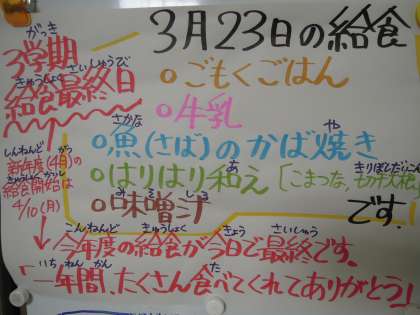 3月23日の給食
がっき
3学期
きゅうしょく さいしゅうび
給食最終日
しんねんど がつ
新年度(4月)の
きゅうしょくかいし
給食開始は
4/10(月)
○ごもくごはん
○牛乳
さかな や
○魚(さばの)のかば焼き
あ きりぼしだいこん
○はりはり和え〔こまつな、切干大根〕
み そ しる
○味噌汁
です。
こんねんど きゅうしょく きょう さいしゅう
今年度の給食が今日で最終です。
いち ねん かん た
「一年間、たくさん食べてくれてありがとう」